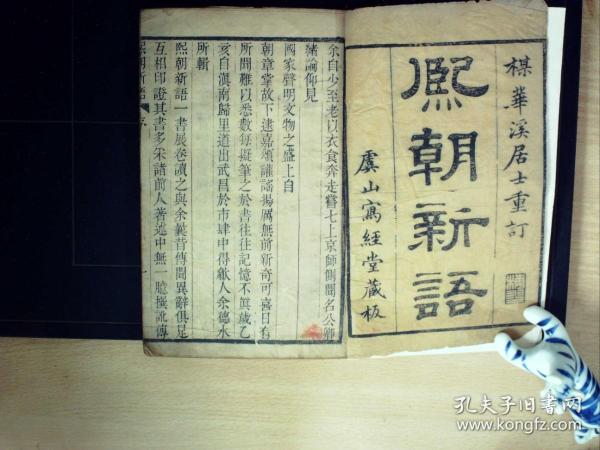 棋華溪居士重訂
熙朝新語
虞山寓經堂藏板
余自少至老以衣食奔走嘗七上京師側聞名公卿
緒論仰見
國家聲明文物之盛上自
朝章掌故下逮嘉頌讙謠揚厲無前新奇可喜日有
所聞雖以悉數每擬筆之於書往往記憶不眞歲乙
亥自滇南歸里道出武昌於市肆中得歙人余德水
所輯
熙朝新語一書展卷讀之與余曩昔傳聞異辭俱足
互相印證其書多采諸前人著述中無一臆撰訛傳
熙朝新語 序 一
孔夫子旧书网
www.kongfz.com